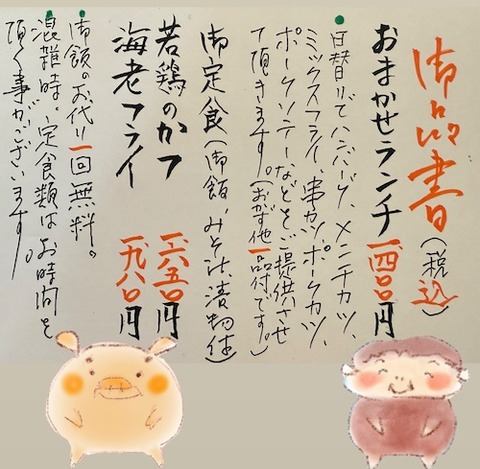 御品書(税込)
おまかせランチ一、四〇〇円
日替りでハンバーグ、メンチカツ、
ミックスフライ、串カツ、ポークカツ、
ポークソテーなどをご提供させ
て頂きます。(おかず他一品付です。)
御定食(御飯、みそ汁、漬物付)
若鶏のかつ 一、六五〇円
海老フライ 一、九八〇円
御飯のお代り一回無料。
混雑時。定食類はお時間を
頂く事がございます。